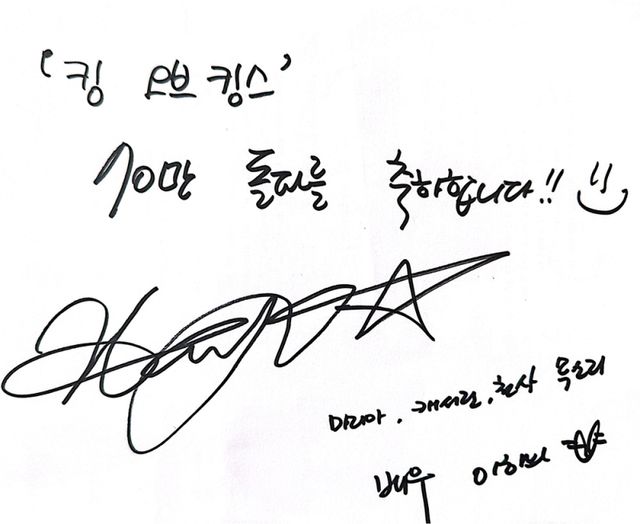 '킹 오브 킹스'
70만 돌파를 축하합니다!!
마리아, 캐서린, 천사 목소리
배우 이하늬